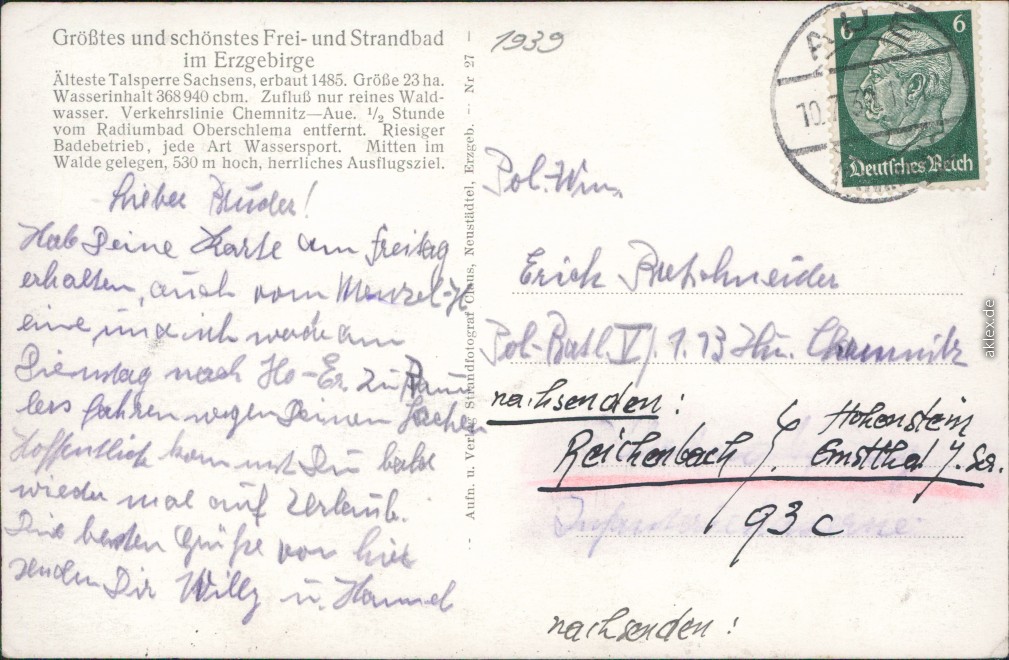 Größtes und schönstes Frei- und Strandbad
im Erzgebirge
Älteste Talsperre Sachsens, erbaut 1485. Größe 23 ha.
Wasserinhalt 368 940 cbm. Zufluß nur reines Wald-
wasser. Verkehrslinie Chemnitz—Aue. 1/2 Stunde
vom Radiumbad Oberschlema entfernt. Riesiger
Badebetrieb, jede Art Wassersport. Mitten im
Walde gelegen, 530 m hoch, herrliches Ausflugsziel.
Lieber Bruder!
Hab Deine Karte am Freitag
erhalten, auch vom Menzel-H
eine und ich werde am
Dienstag nach Ho-Er. zu
fahren wegen Deinen Sachen
Hoffentlich kommst Du bald
wieder mal auf Urlaub.
Die besten Grüße von hier
senden Dir Willy u.
-- Aufn. u. Verlag Strandfotograf Claus, Neustädtel, Erzgeb. -- Nr 27 --
1939
AUE
6 6
Deutsches Reich
Pol.
Erich Bretschneider
Pol-Batl. V/ 1. 13 Hu. Chemnitz
nachsenden:
Reichenbach
Hohenstein
Ernstthal i. Sa.
93 c
nachsenden:
aklex.de